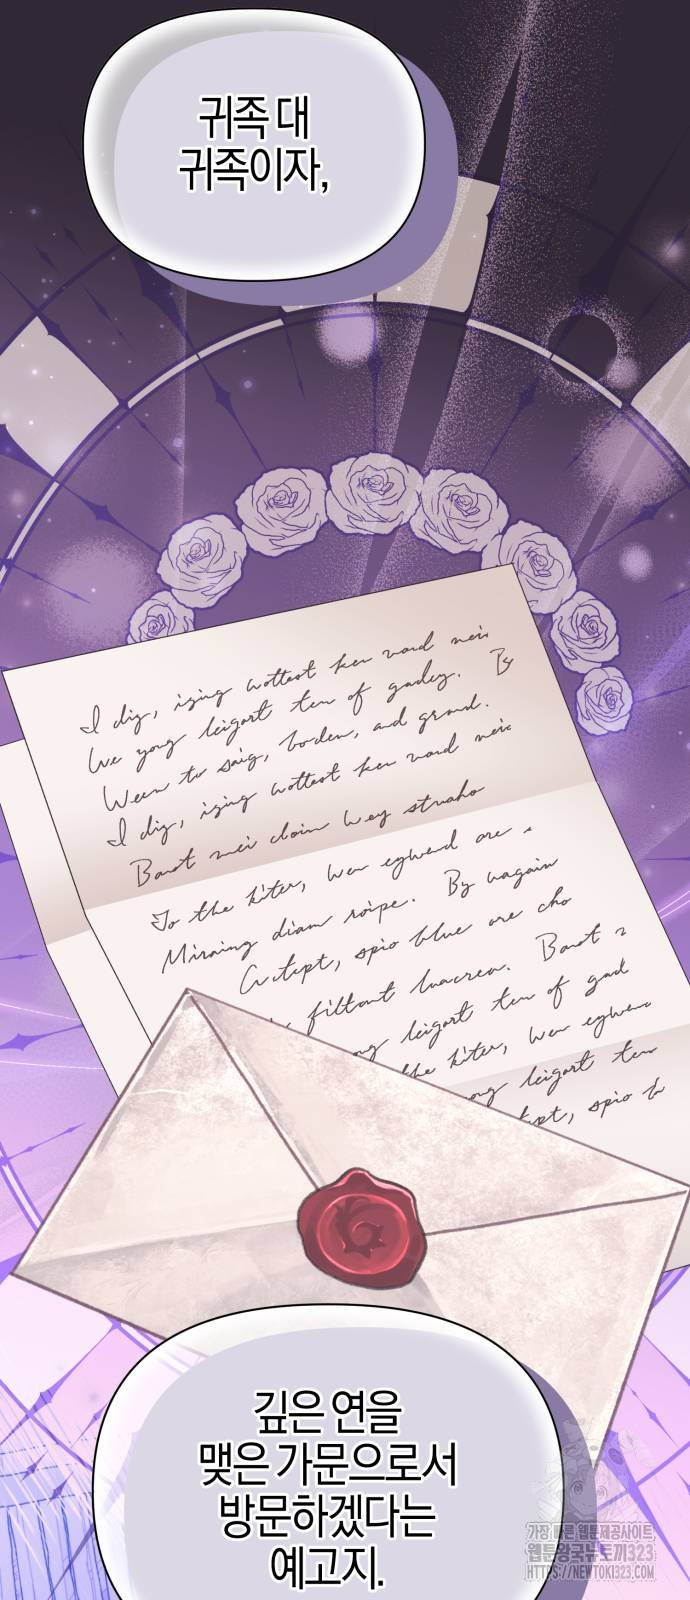 귀족 대
귀족이자,
I dig, izing wottest ken vard nein
We yong leigart ten of gadey. By
Ween to saig, boden, and grand.
I dig, izing wottest ken vard nein
Banot mei cloin wey struaho
To the kiter, wen eghwend are
Miraing diam roipe. By wagain
Cutept, spio blue are cho
filtout luacrea. Banot
ng leigart ten of gad
the kiter, wen eghwen
ong leigart ten
tept, spio
깊은 연을
맺은 가문으로서
방문하겠다는
예고지.
가장 빠른 웹툰제공사이트
웹툰왕국뉴토끼323
HTTPS://NEWTOKI323.COM